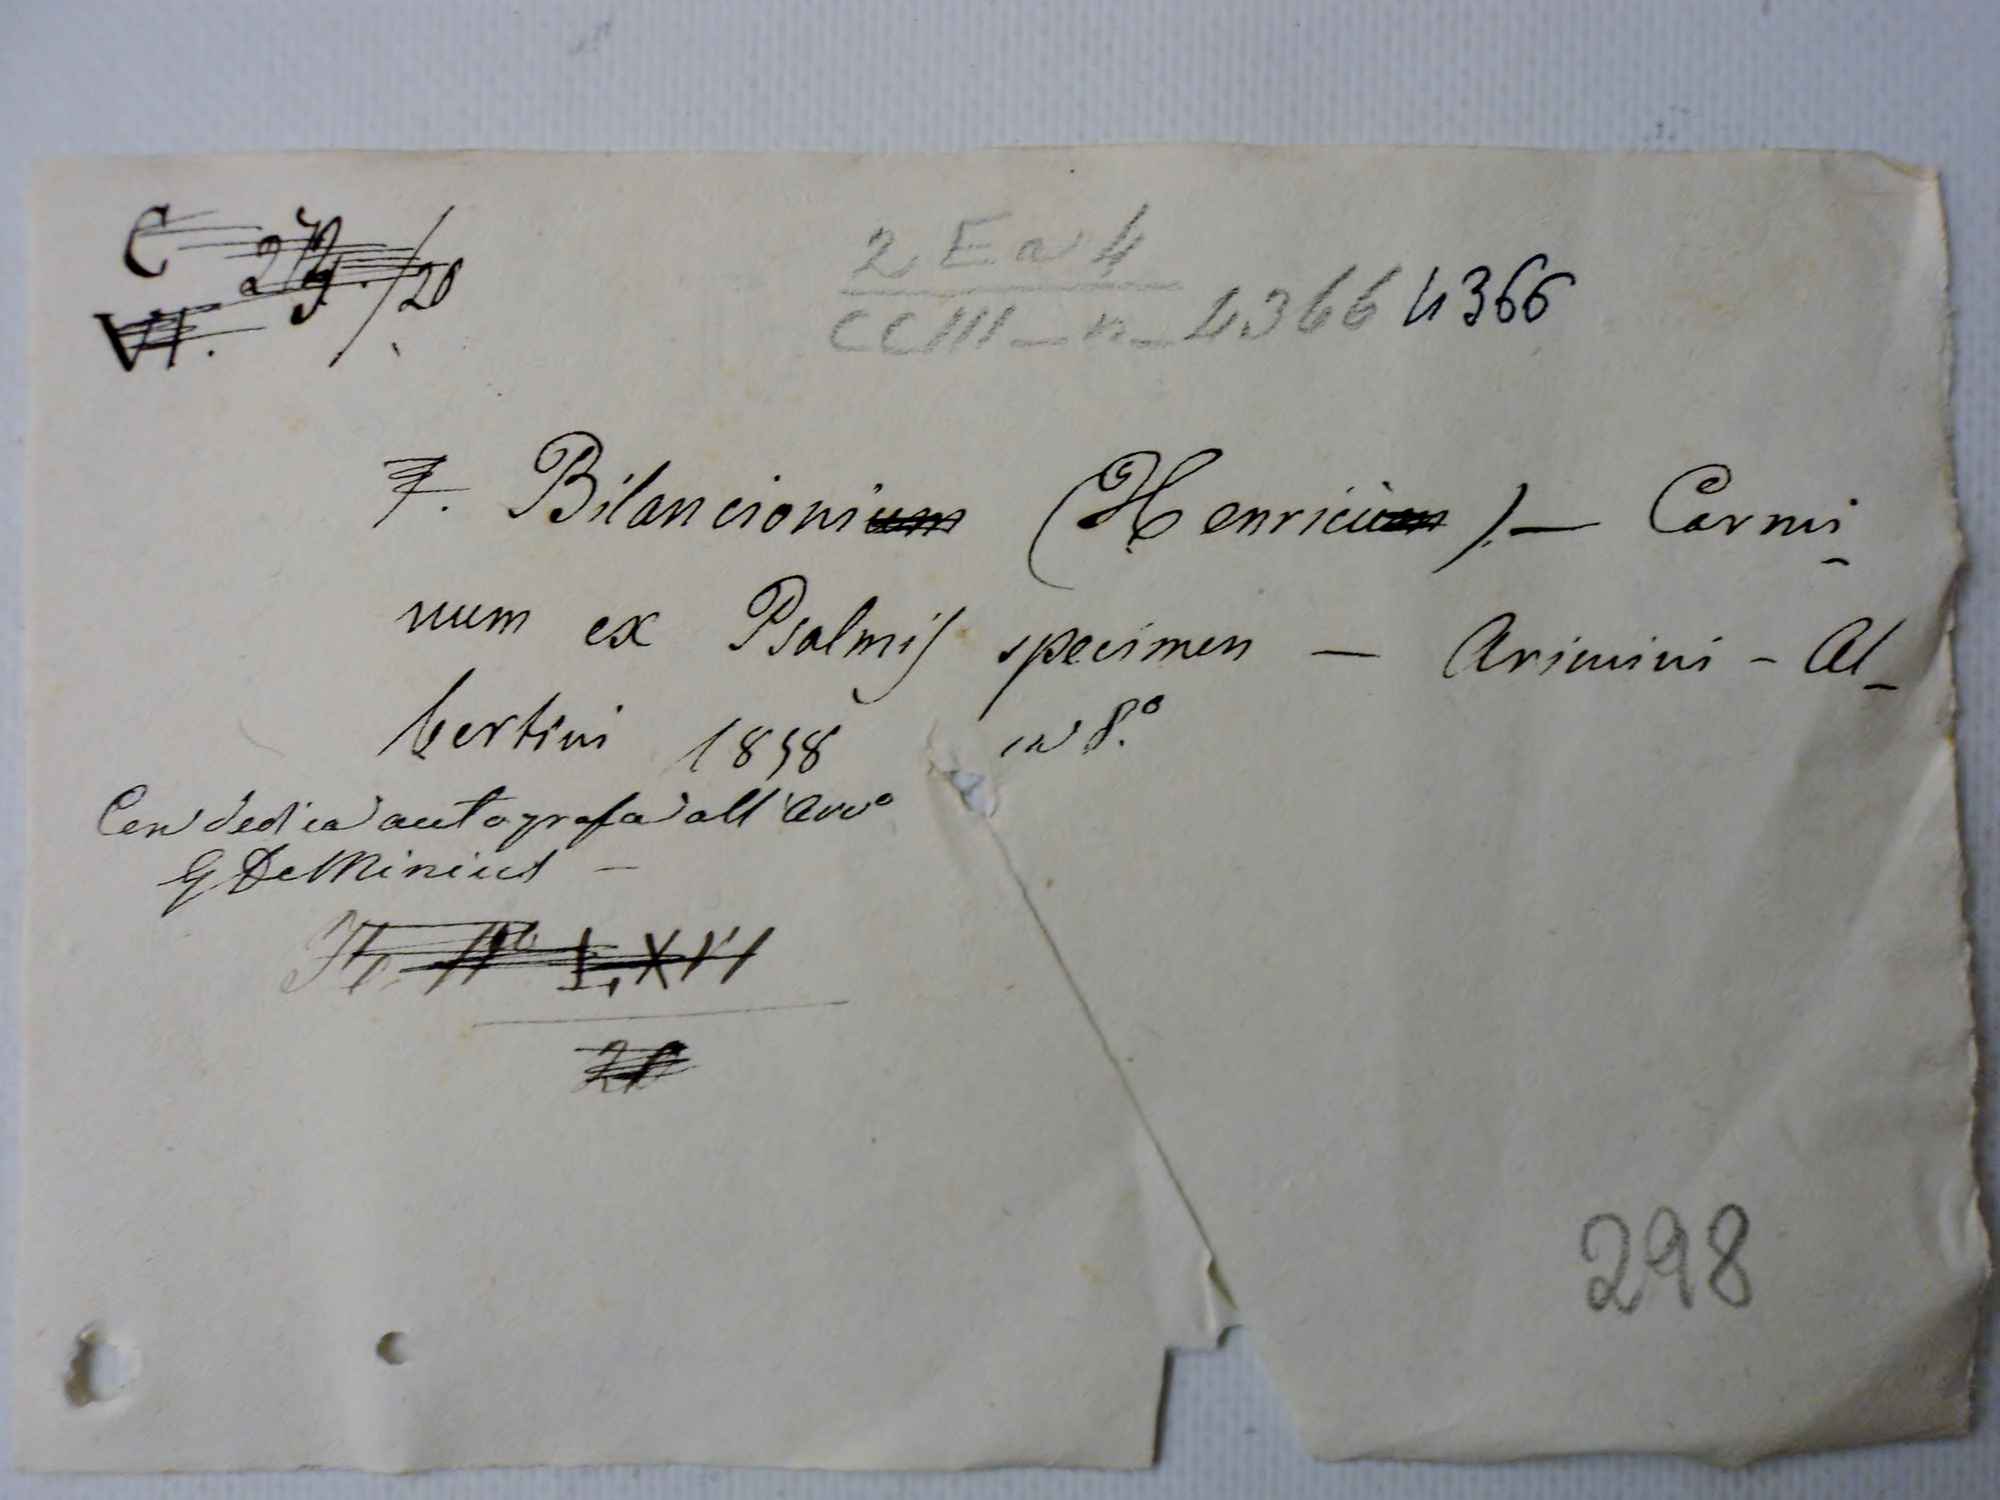 C
VI.
/20
2 E a 4
CCIII - n - 4366 4366
Bilancionium (Henricum). - Carmi-
num ex Psalmis specimen - Arimini - Al-
bertini 1858 in 8.º
Con dedica autografa all'Avvº
G De Minicis -
LXVI
20
298